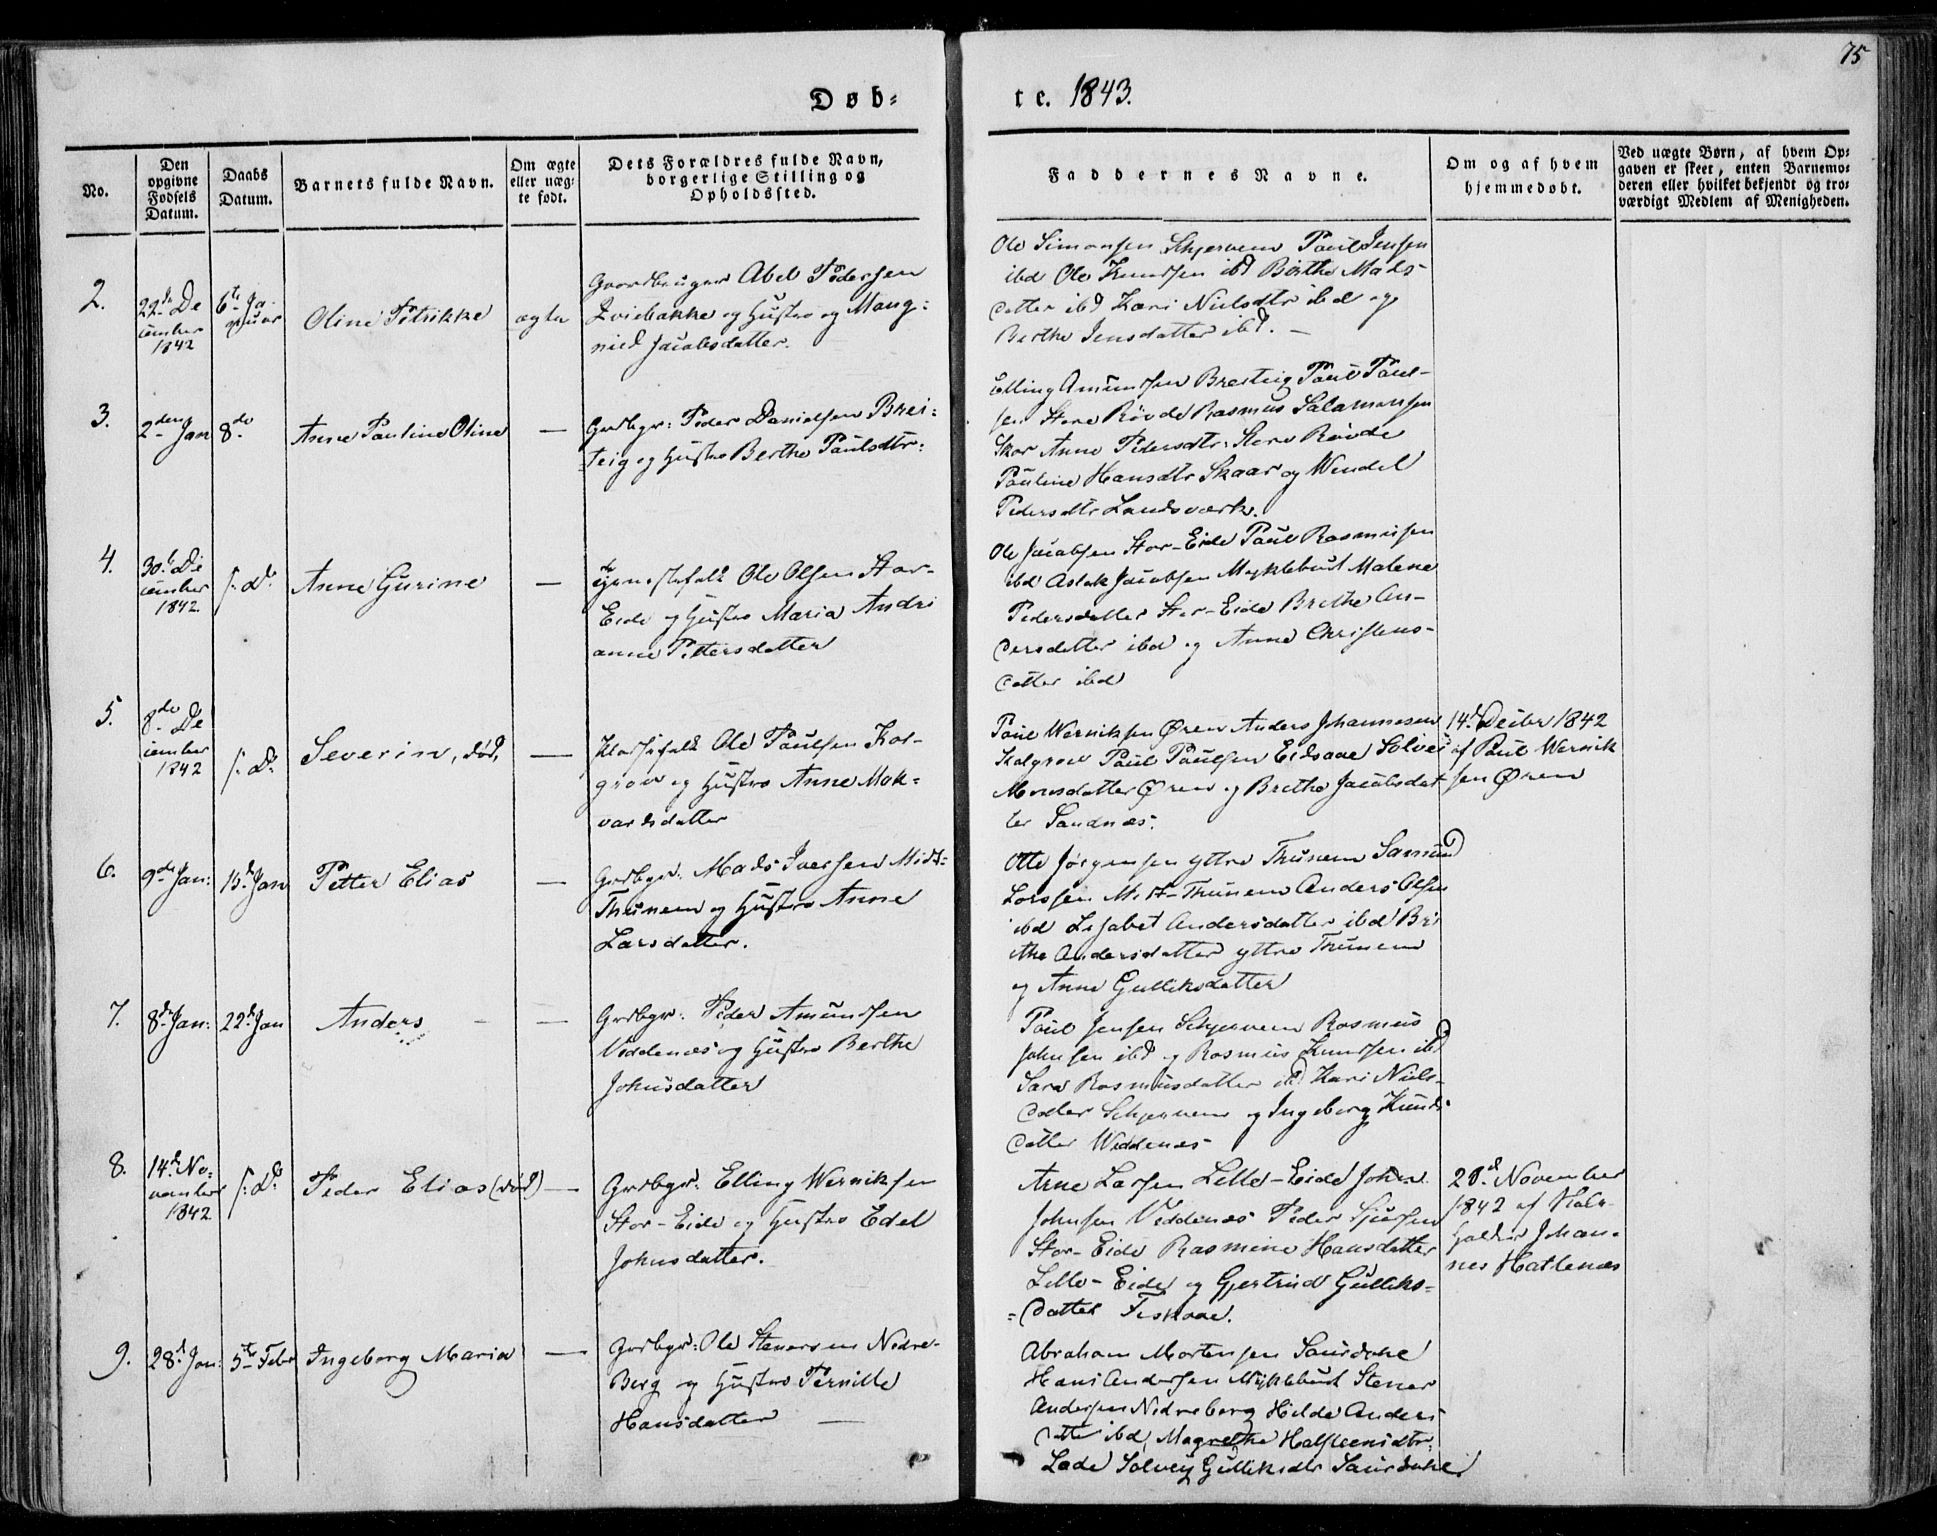 75
Døb-
te. 1843.
No.
Den opgivne Fødsels Datum.
Daabs Datum.
Barnets fulde Navn.
Om ægte eller uægte født.
Dets Forældres fulde Navn, borgerlige Stilling og Opholdssted.
Faddernes Navne.
Om og af hvem hjemmedøbt.
Ved uægte Børn, af hvem Opgaven er skeet, enten Barnemoderen eller hvilket bekjendt og troværdigt Medlem af Menigheden.
2.
22de De
cember
1842
6te Ja-
nuar
Oline Petrikke
ægte
Gaardbruger Abel Pedersen
Hustro og Mang-
nild Jacobsdatter.
Ole Simonsen Schjervem Paul Jensen
ibd Ole Knudsen ibd Birthe Mads-
datter ibd Kari Nielsdtr ibd og
Berthe Jensdatter ibd. –
3.
2den Jan
8de
Anne Pauline Oline
—
Grdbgr: Peder Danielsen Brei-
teig og Hustro Berthe Paulsdtr.
Elling Amundsen Breiteig Paul Paul-
sen Store Røvde Rasmus Salamonsen
Skor Anne Pedersdtr: Store Røvde
Pauline Hansdtr Skaar og Wendel
Pedersdtr Landsværk.
4.
30te De
cember
1842
s. D.
Anne Gurine
—
Tjenestefolk Ole Olsen Stor-
Eide og Hustro Maria Andri
anne Pettersdatter
Ole Jacobsen Stor-Eide Paul Rasmusen
ibd Aslak Jacobsen Myklebust Malene
Pedersdatter Stor-Eide Brethe An-
dersdatter ibd og Anne Christens-
datter ibd
5.
8de De
cember
1842
s. D.
Severin, død,
—
Ole Paulsen Kol-
grov og Hustro Anne Mak-
vardsdatter
Paul Werniksen Øren Anders Johannesen
Kolgrov Paul Paulsen Eidsaae Solvei
Monsdatter Øren og Brethe Jacobsdat
ter Sandnæs.
14de Decbr 1842
af Paul Wernik
sen Øren
6.
9de Jan:
15de Jan
Petter Elias
—
Grdbgr: Mads Iversen Midt-
Thunem og Hustro Anne
Larsdatter.
Otte Jørgensen yttre Thunem Samund
Larssen Midt-Thunem Anders Olsen
ibd Lisabet Andersdatter ibd Bri
the Andersdatter yttre Thunem
og Anne Gulliksdatter
7.
8de Jan:
22de Jan
Anders
—
Grdbgr: Peder Amundsen
Veddenæs og Hustro Berthe
Johnsdatter
Paul Jensen Schjervem Rasmus
Johnsen ibd og Rasmus Knudsen ibd
Sara Rasmusdatter ibd Kari Niels-
datter Schjervem og Ingeborg Knuds
datter Weddenæs
8.
14de No-
vember
1842
s. D.
Peder Elias (død)
—
Grdbgr: Elling Werniksen
Stor-Eide og Hustro Edel
Johnsdatter.
Arne Larsen Lille-Eide John
Johnsen Veddenæs Peder Sjursen
Stor-Eide Rasmine Hansdatter
Lille-Eide og Gjertrud Gulliks-
datter Fiskaae.
20de November
1842 af Kole-
holder Johan-
nes Hatlenæs
9.
28de Jan:
5te Febr
Ingeborg Maria
—
Grdbgr: Ole Stenersen Nedre-
Berg og Hustro Pernille
Hansdatter —
Abraham Mortensen Saurdahe
Hans Andersen Myklebust Stener
Andersen Nedreberg Hilde Anders
datter ibd, Magrethe Halsteensdtr:
Lade Solvey Gulliksdtr Saurdahe